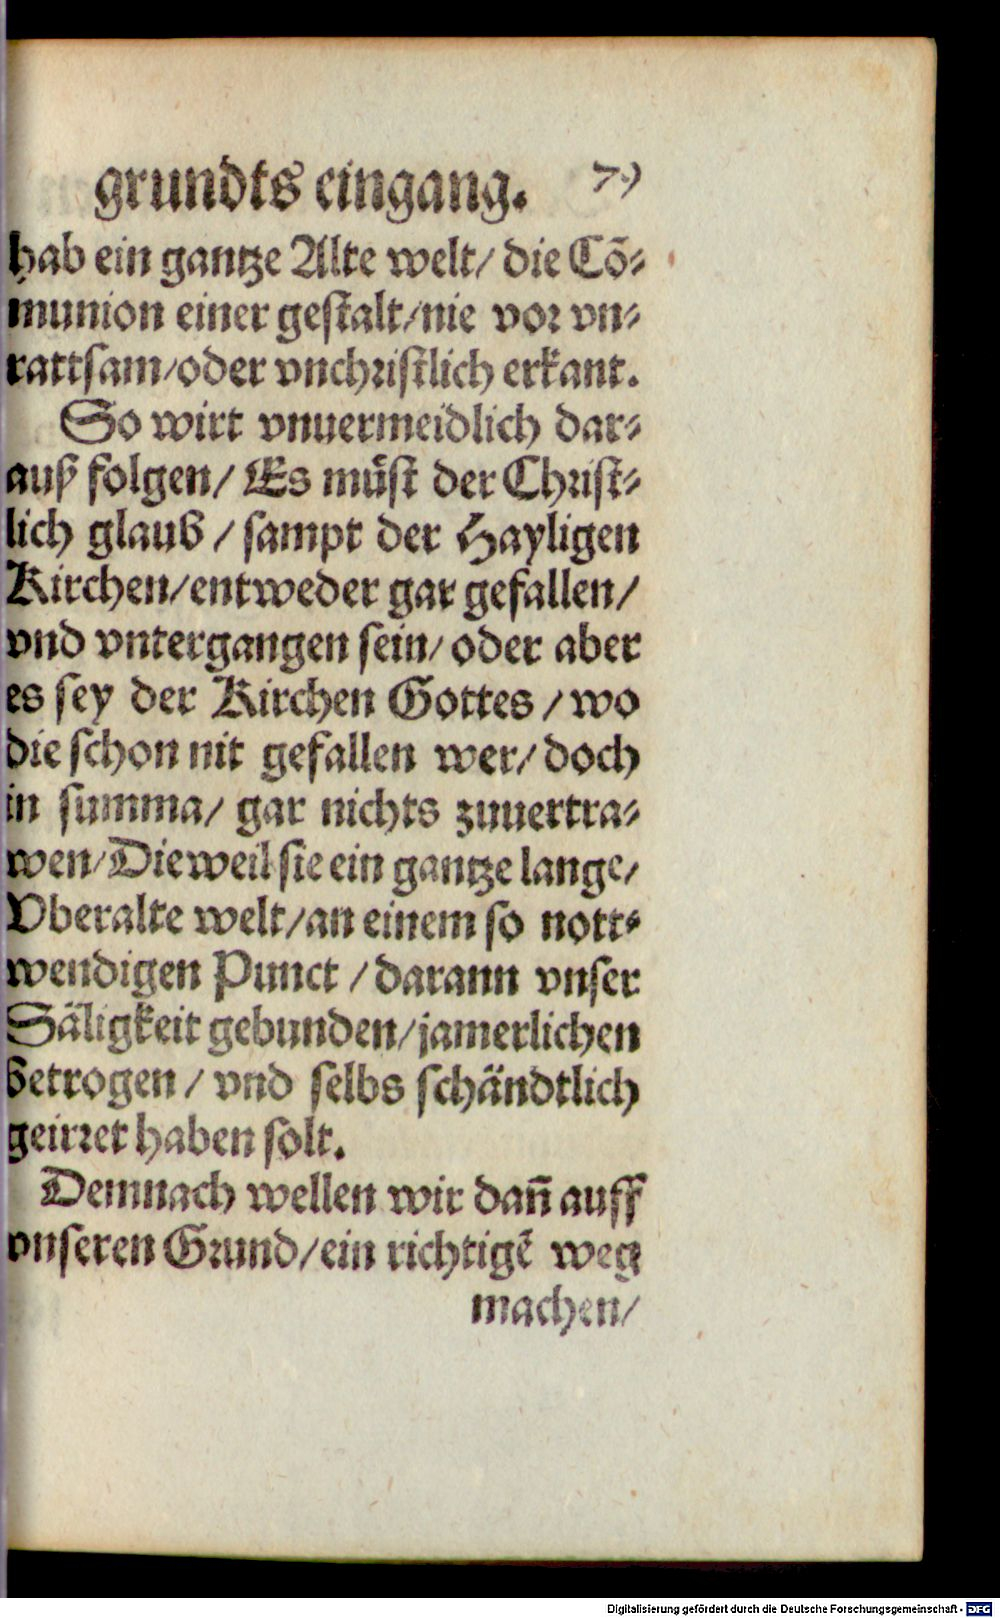 grundts eingang. 79
hab ein gantze Alte welt/ die Cõ⸗
munion einer gestalt/nie vor vn⸗
rattsam/oder vnchristlich erkant.
So wirt vnuermeidlich dar⸗
auß folgen/ Es müst der Christ⸗
lich glaub / sampt der Hayligen
Kirchen/entweder gar gefallen/
vnd vntergangen sein/ oder aber
es sey der Kirchen Gottes / wo
die schon nit gefallen wer/ doch
in summa/ gar nichts zuuertra⸗
wen/Dieweil sie ein gantze lange/
Vberalte welt/an einem so nott⸗
wendigen Punct / darann vnser
Säligkeit gebunden/jamerlichen
betrogen / vnd selbs schändtlich
geirret haben solt.
Demnach wellen wir dañ auff
vnseren Grund/ein richtigẽ weg
machen/
Digitalisierung gefördert durch die Deutsche Forschungsgemeinschaft - DFG